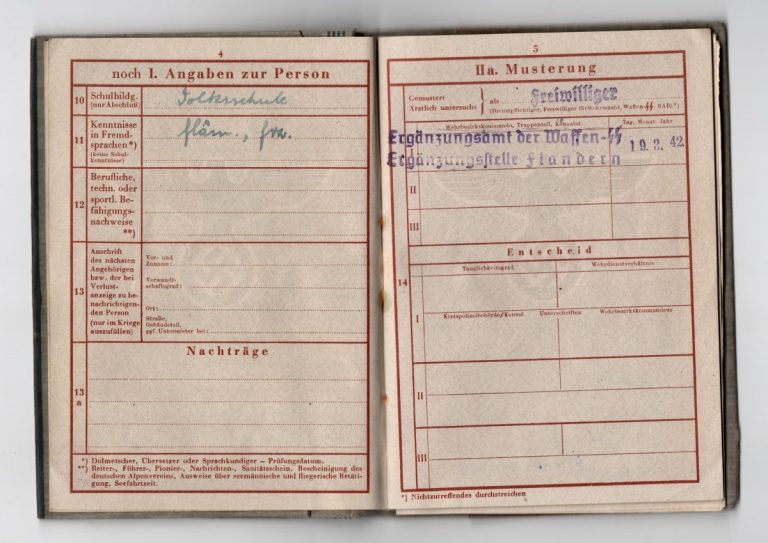 4
noch I. Angaben zur Person
10 Schulbildg. Volksschule
(nur Abschluß)
11 Kenntnisse fläm., frz.
in Fremd-
sprachen*)
(keine Schul-
kenntnisse)
12 Berufliche,
techn. oder
sportl. Be-
fähigungs-
nachweise
**)
13 Anschrift
des nächsten
Angehörigen
bzw. der bei
Verlust-
anzeige zu be-
nachrichtigen-
den Person
(nur im Kriege
auszufüllen)
Vor- und
Zuname:
Verwandt-
schaftsgrad:
Ort:
Straße,
Gebäudeteil,
ggf. Untermieter bei:
Nachträge
13
a
*) Dolmetscher, Übersetzer oder Sprachkundiger – Prüfungsdatum.
**) Reiter-, Führer-, Pionier-, Nachrichten-, Sanitätsschein, Bescheinigung des
deutschen Alpenvereins, Ausweise über seemännische und fliegerische Betäti-
gung, Seefahrtzeit.
5
IIa. Musterung
Gemustert
Ärztlich untersucht } als Freiwilliger
(Dienstpflichtiger, Freiwilliger für Wehrmacht, Waffen-SS RAD)*)
Wehrbezirkskommando, Truppenteil, Konsulat Tag, Monat, Jahr
Ergänzungsamt der Waffen-SS
Ergänzungsstelle Flandern
19. 3. 42
II
III
Entscheid
14
Tauglichkeitsgrad Wehrdienstverhältnis
I
Kreispolizeibehörde/Konsul Unterschriften Wehrbezirkskommandeur
II
III
*) Nichtzutreffendes durchstreichen